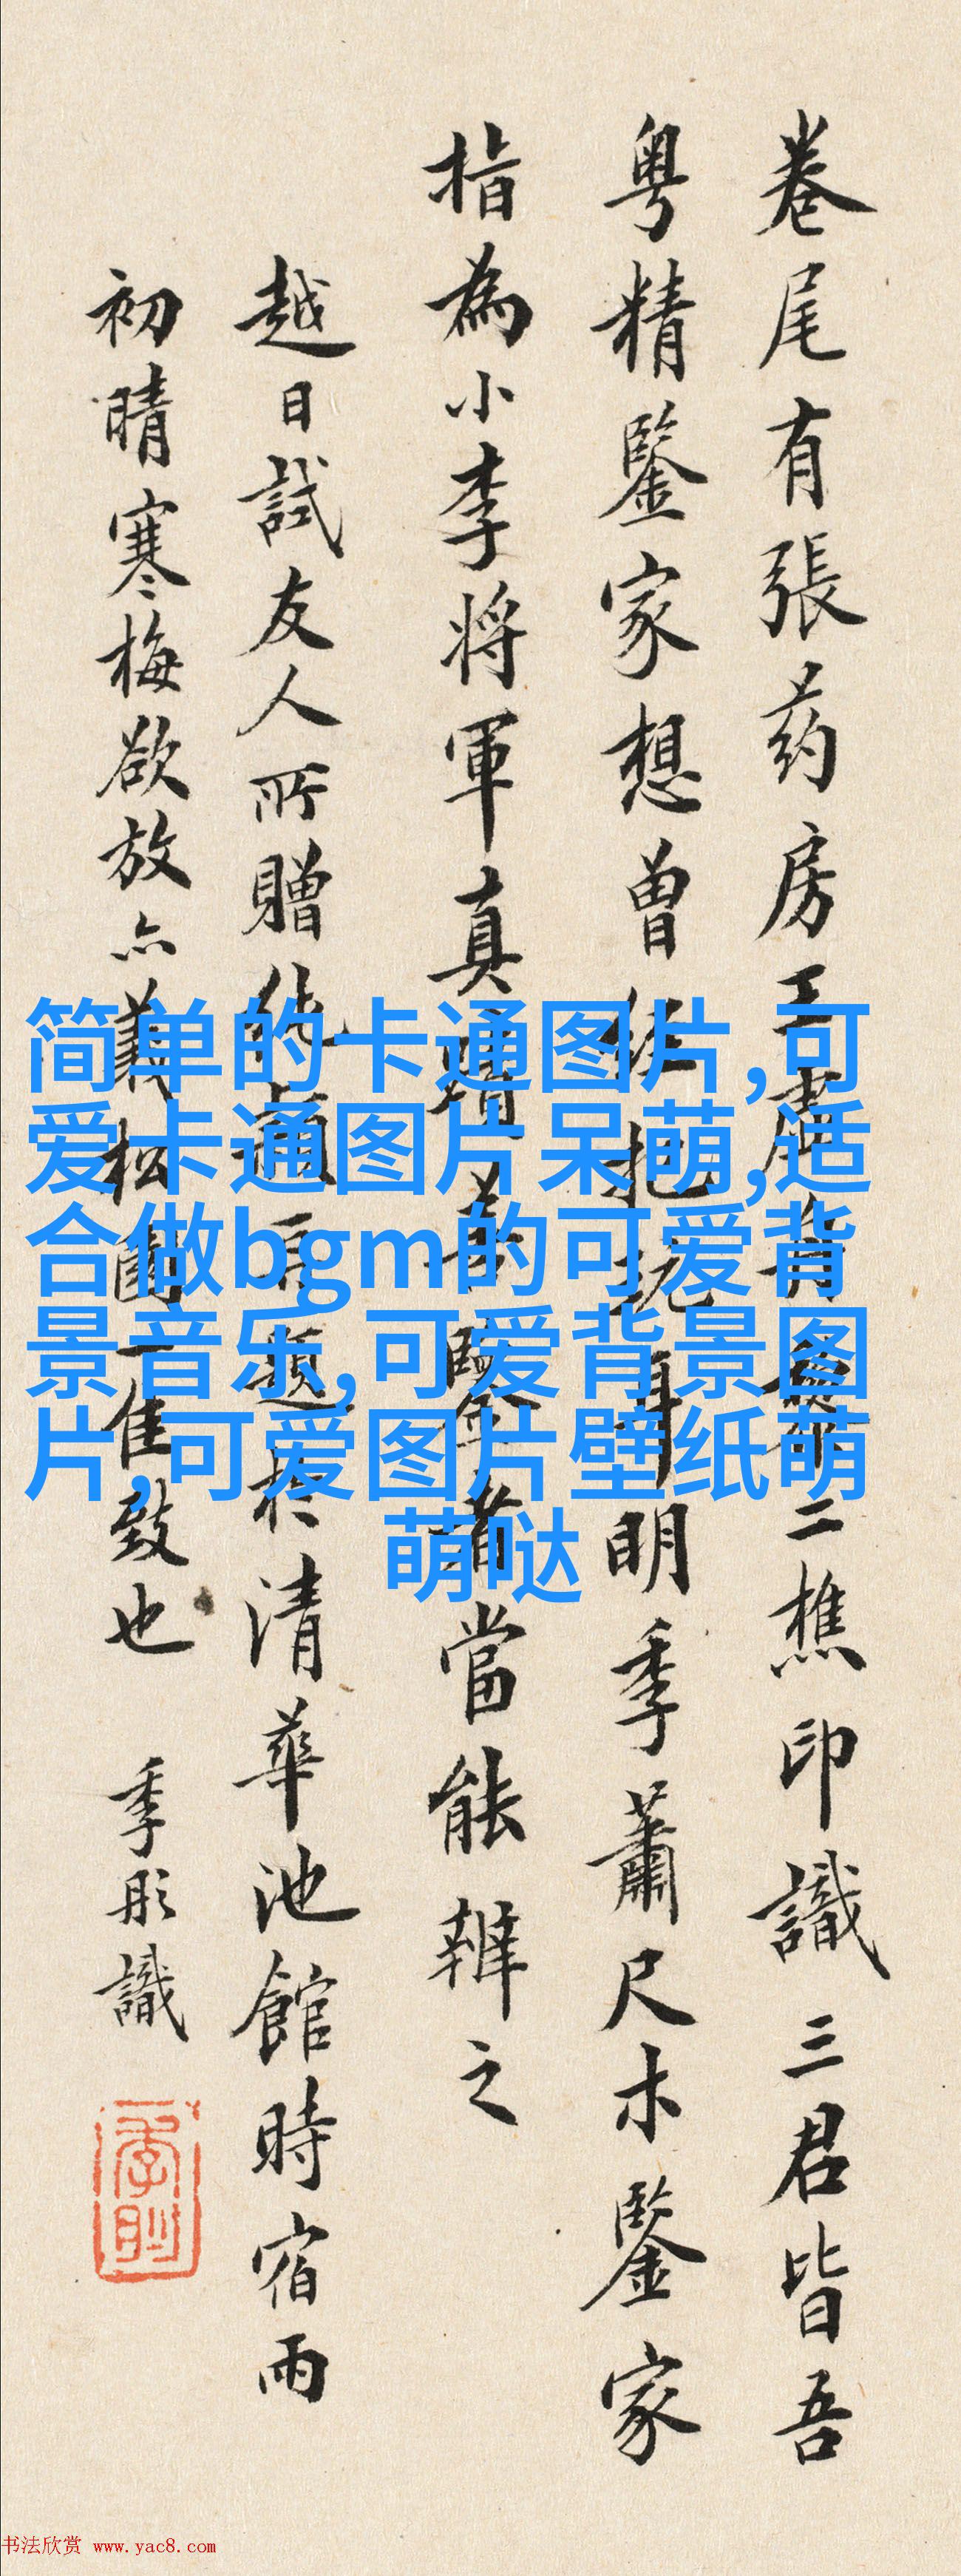 卷尾有張药房王
二樵印識三君皆吾
粤精鑒家想曾經把玩
明季蕭尺木鑒家
指為小李将軍真蹟
者當能辨之
越日試友人所贈
題於清華池館時宿雨
初晴寒梅欲放亦
松園一佳致也 季彤識
简单的卡通图片,可
爱卡通图片呆萌,适
合做bgm的可爱背
景音乐,可爱背景图
片,可爱图片壁纸萌
萌哒
书法欣赏 www.yac8.com